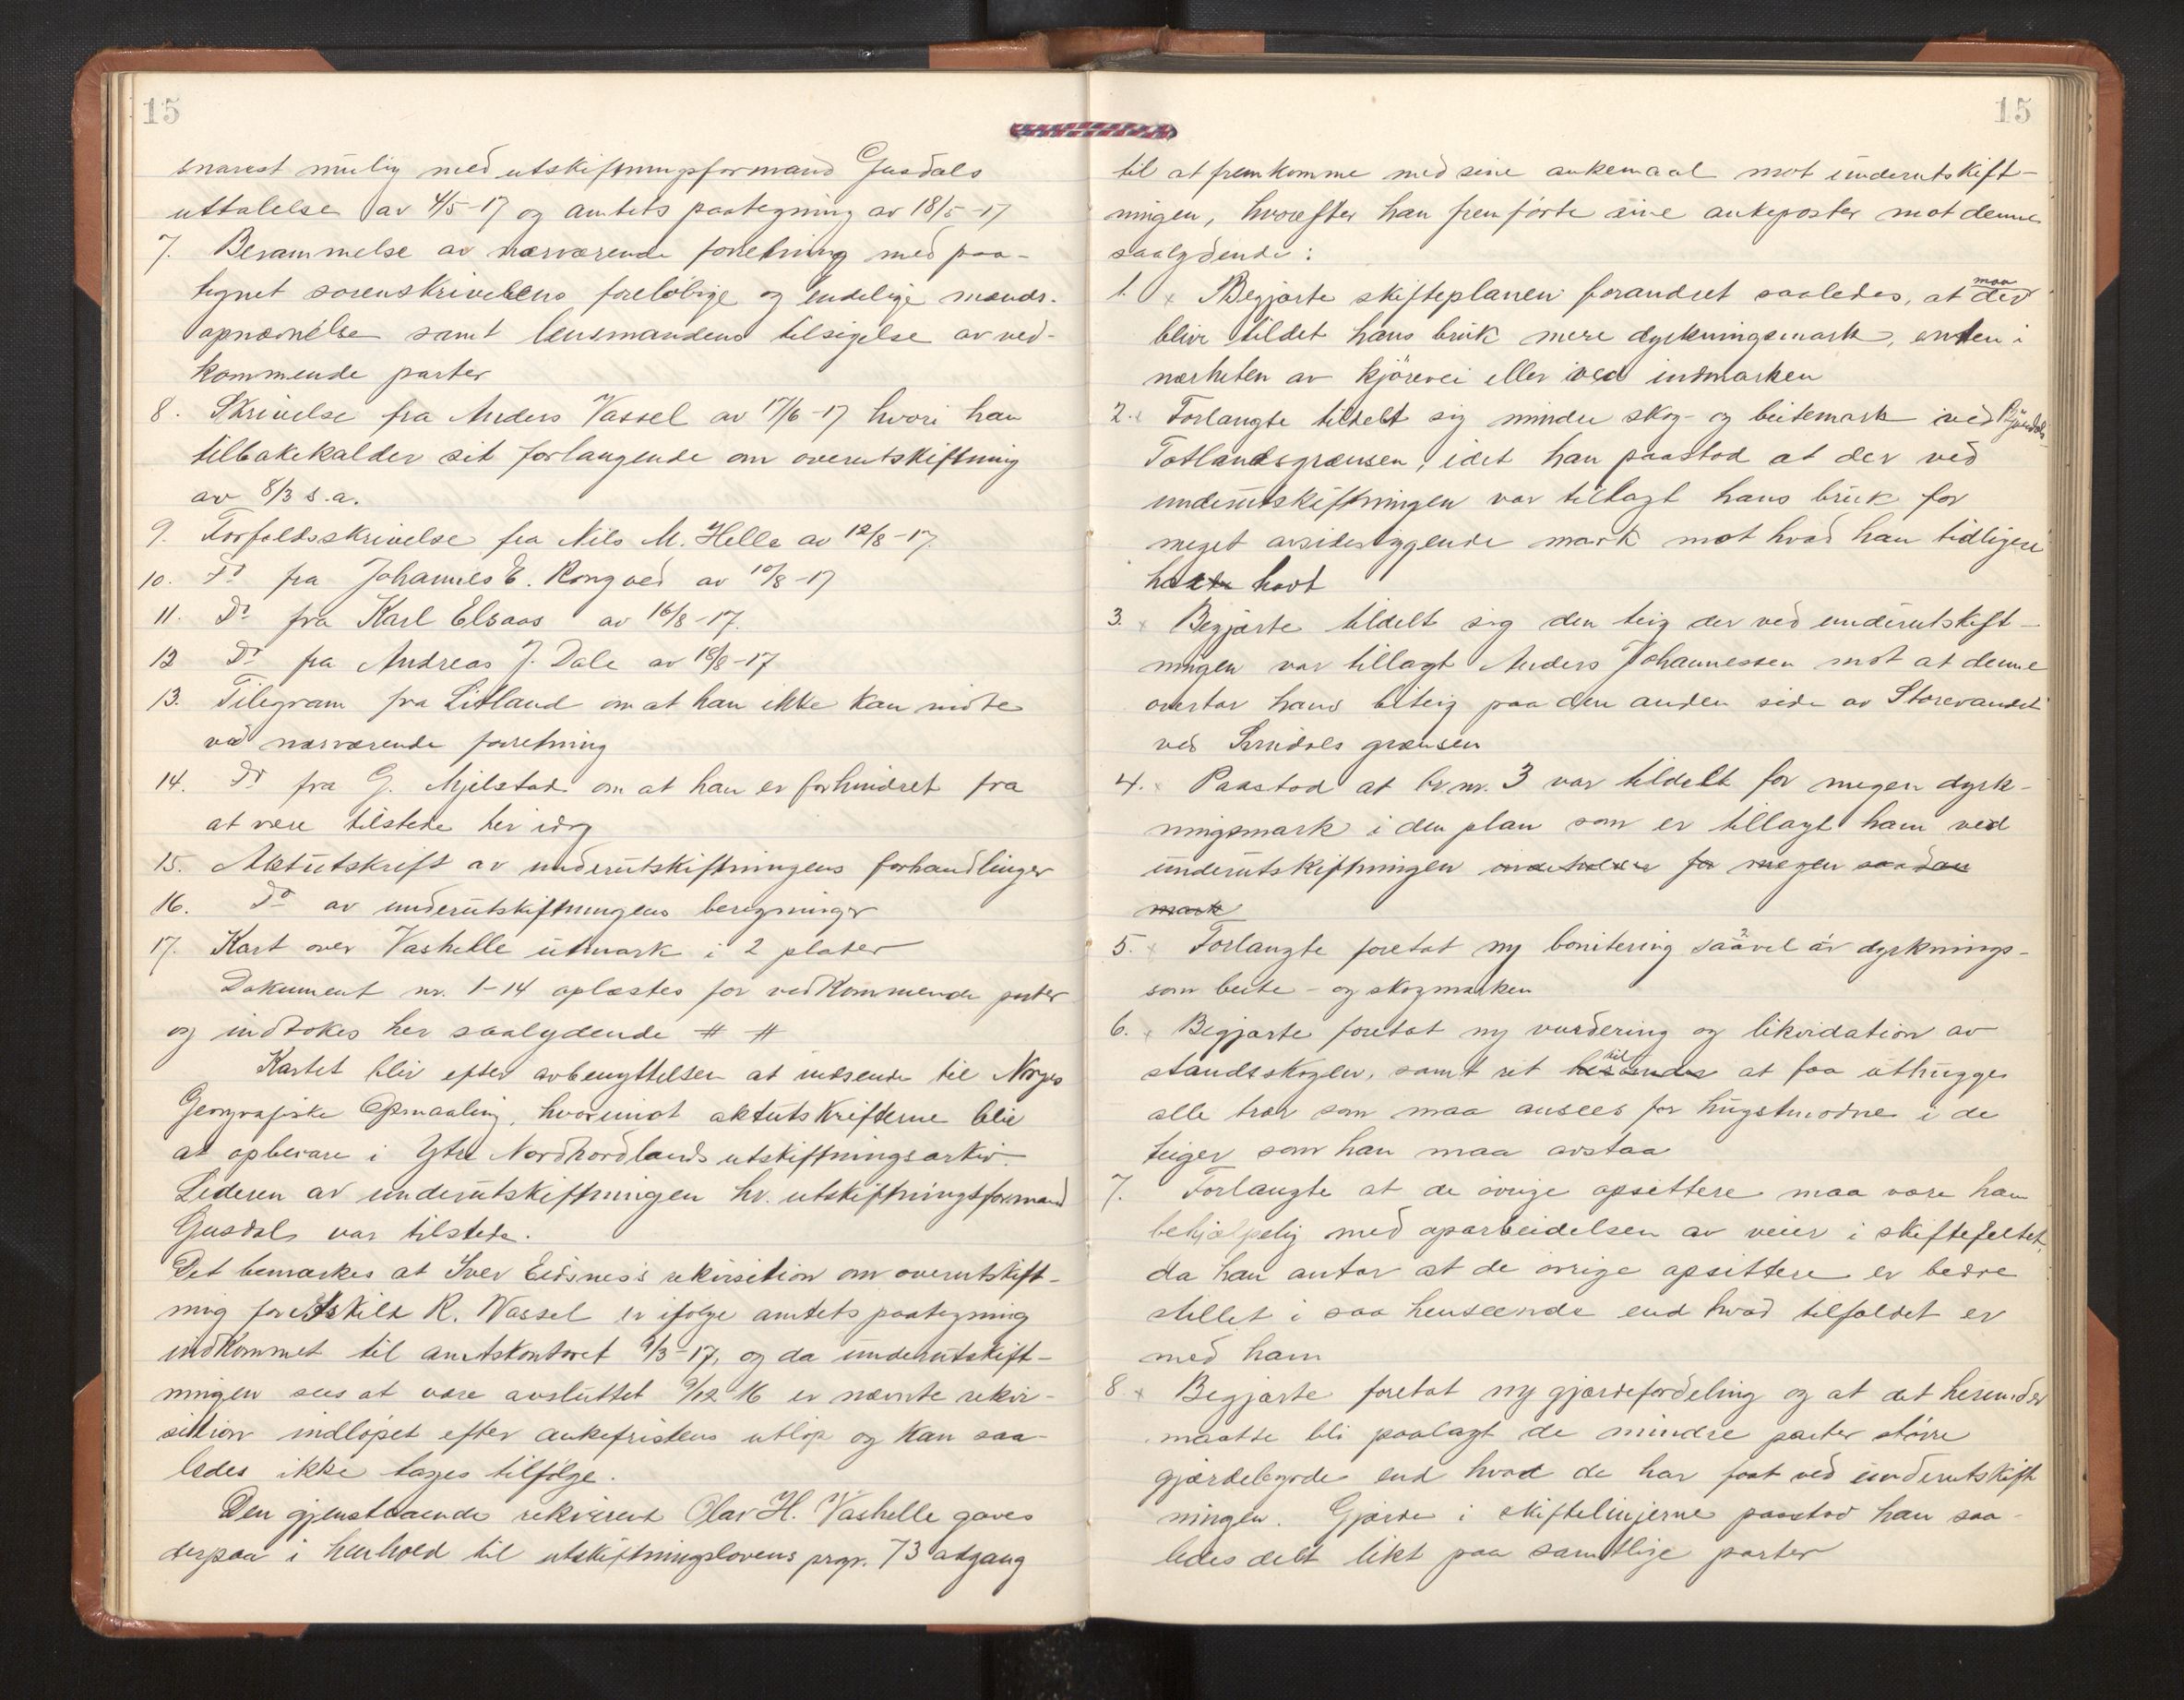 15
snarest mulig med utskiftningsformand Gusdals
uttalelse av 4/5-17 og amtets paategning av 18/5-17
7. Berammelse av nærværende forretning med paa-
tegnet sorenskriverens foreløbige og endelige mands-
opnævnelse samt lensmandens tilsigelse av ved-
kommende parter
8. Skrivelse fra Anders Vassel av 17/6-17 hvori han
tilbakekalder sit forlangende om overutskiftning
av 8/3 s.a.
9. Forfaldsskrivelse fra Nils M. Helle av 12/8-17.
10. Do fra Johannes E. Rongved av 10/8-17
11. Do fra Karl Elsaas av 16/8-17.
12 Do fra Andreas J. Dale av 18/8-17
13. Telegram fra Litland om at han ikke kan møte
ved nærværende forretning
14. Do fra G. Mjelstad om at han er forhindret fra
at være tilstede her idag
15. Aktutskrift av underutskiftningens forhandlinger
16. Do av underutskiftningens beregninger
17. Kart over Vashelle utmark i 2 plater
Dokument nr. 1-14 oplæstes for vedkommende parter
og indtokes her saalydende # #
Kartet blir efter avbenyttelsen at indsende til Norges
Geografiske Opmaaling, hvorimot aktutskrifterne blir
at opbevare i Ytre Nordhordlands utskiftningsarkiv.
Lederen av underutskiftningen hr. utskiftningsformand
Gusdal var tilstede.
Det bemærkes at Iver Eidsnes's rekvisition om overutskift-
ning for Eskild R. Vassel er ifølge amtets paategning
indkommet til amtskontoret 9/3-17, og da underutskift-
ningen sees at være avsluttet 9/12 16 er nævnte rekvi-
sition indløpet efter ankefristens utløp og kan saa-
ledes ikke tages tilfølge.
Den gjenstaaende rekvirent Olav H. Vashelle gaves
derpaa i henhold til utskiftningslovens prgr. 73 adgang
15
til at fremkomme med sine ankemaal mot underutskift-
ningen, hvorefter han fremførte sine ankeposter mot denne
saalydende:
1. x Begjærte skifteplanen forandret saaledes, at der maa
blive tildelt hans bruk mere dyrkningsmark, enten i
nærheten av kjørevei eller ved indmarken
2. x Forlangte tildelt sig mindre skog- og beitemark ved
Totlandsgrænsen, idet han paastod at der ved
underutskiftningen var tillagt hans bruk for
meget avsidesliggende mark mot hvad han tidligere
hadde havt
3. x Begjærte tildelt sig den teig der ved underutskift-
ningen var tillagt Anders Johannessen mot at denne
overtar hans teig paa den anden side av Storevandet
ved grænsen
4. x Paastod at br.nr. 3 var tildelt for megen dyrk-
ningsmark i den plan som er tillagt ham ved
underutskiftningen for megen saadan
mark
5. x Forlangte foretat ny bonitering saavel av dyrknings-
som beite- og skogmarken
6. x Begjærte foretat ny vurdering og likvidation av
standskogen, samt ret til at faa uthugge
alle trær som maa ansees for hugstmodne i de
teiger som han maa avstaa
7. Forlangte at de øvrige opsittere maa være ham
behjælpelig med oparbeidelsen av veier i skiftefeltet,
da han antar at de øvrige opsittere er bedre
stillet i saa henseende end hvad tilfældet er
med ham
8. x Begjærte foretat ny gjærdefordeling og at det herunder
maatte bli paalagt de mindre parter større
gjærdebyrde end hvad de har faat ved underutskift
ningen. Gjærde i skiftelinjerne paastod han saa-
ledes delt likt paa samtlige parter